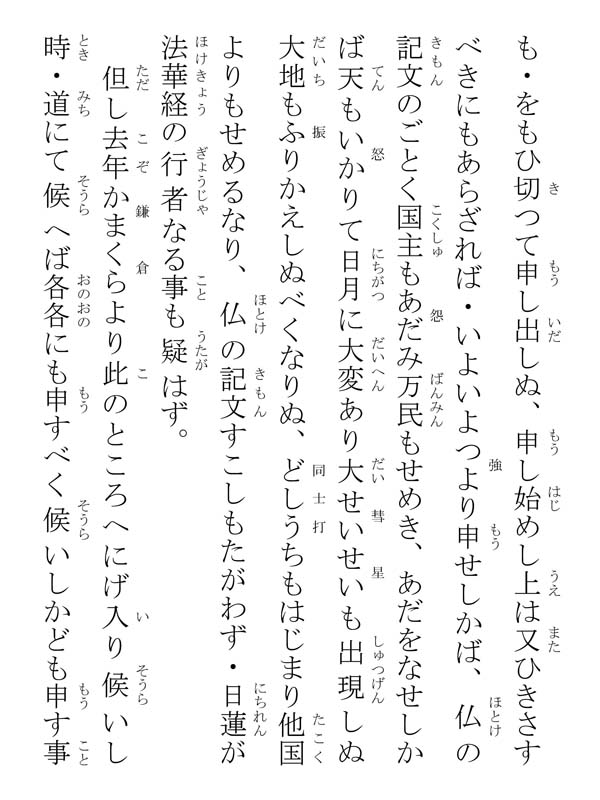 も・をもひ切つて申し出しぬ、申し始めし上は又ひきさす
べきにもあらざれば・いよいよつより申せしかば、仏の
記文のごとく国主もあだみ万民もせめき、あだをなせしか
ば天もいかりて日月に大変あり大せいせいも出現しぬ
大地もふりかえしぬべくなりぬ、どしうちもはじまり他国
よりもせめるなり、仏の記文すこしもたがわず・日蓮が
法華経の行者なる事も疑はず。
但し去年かまくらより此のところへにげ入り候いし
時・道にて候へば各各にも申すべく候いしかども申す事